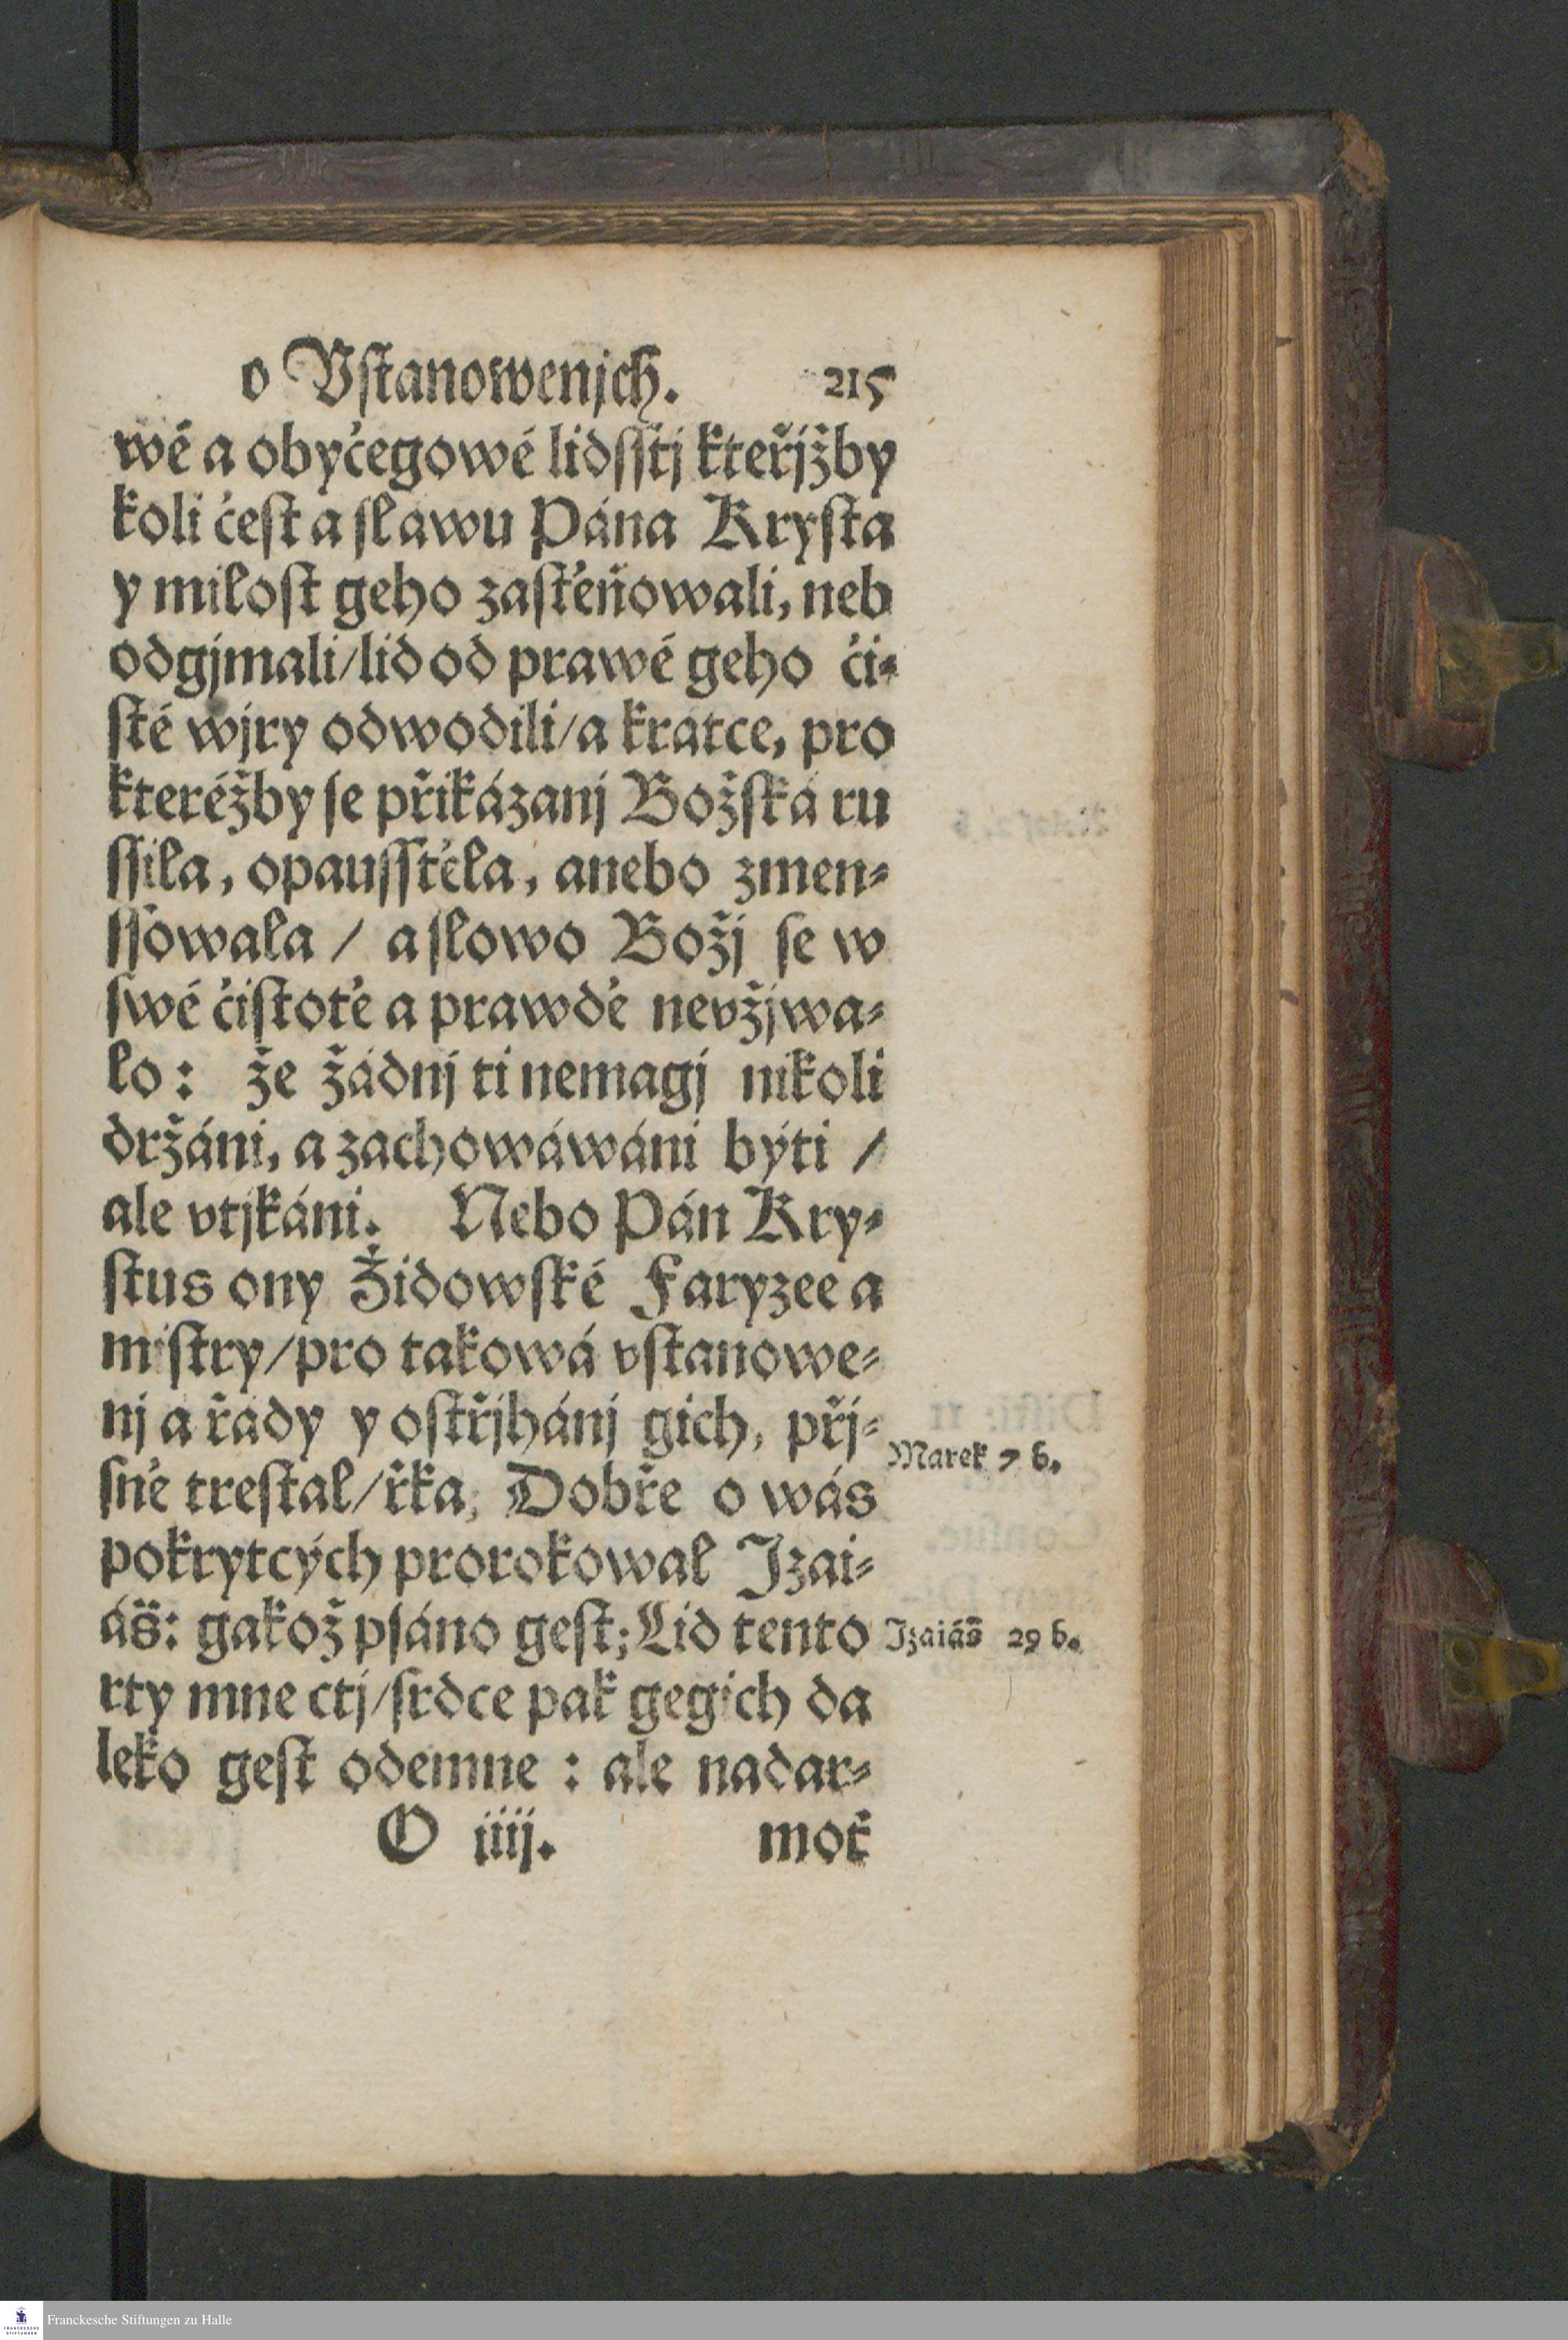 o Vſtanowenjch. 215
wé a obyčegowé lidſſtj kteřjžby
koli čeſt a ſlawu Pána Kryſta
y miloſt geho zaſťeňowali, neb
odgjmali/lid od prawé geho či⸗
ſté wjry odwodili/a krátce, pro
kteréžby ſe přikázanj Božſká ru
ſſila, opauſſťěla, anebo zmen⸗
ſſowala / a ſlowo Božj ſe w
ſwé čiſtotě a prawdě nevžjwa⸗
lo: že žádnj ti nemagj nikoli
držáni, a zachowáwáni býti /
ale vtjkáni. Nebo Pán Kry⸗
ſtus ony Židowſké Faryzee a
miſtry/pro takowá vſtanowe⸗
nj a řády y oſtřjhánj gich, přj⸗
Marek 7 b.
ſně treſtal/řka, Dobře o wás
pokrytcých prorokowal Izai⸗
áš: gakož pſáno geſt; Lid tento
Izaiáš 29 b.
rty mne ctj/ſrdce pak gegich da
leko geſt odemne : ale nadar⸗
O iiij. moť
Franckesche Stiftungen zu Halle
FRANCKESCHE
STIFTUNGEN